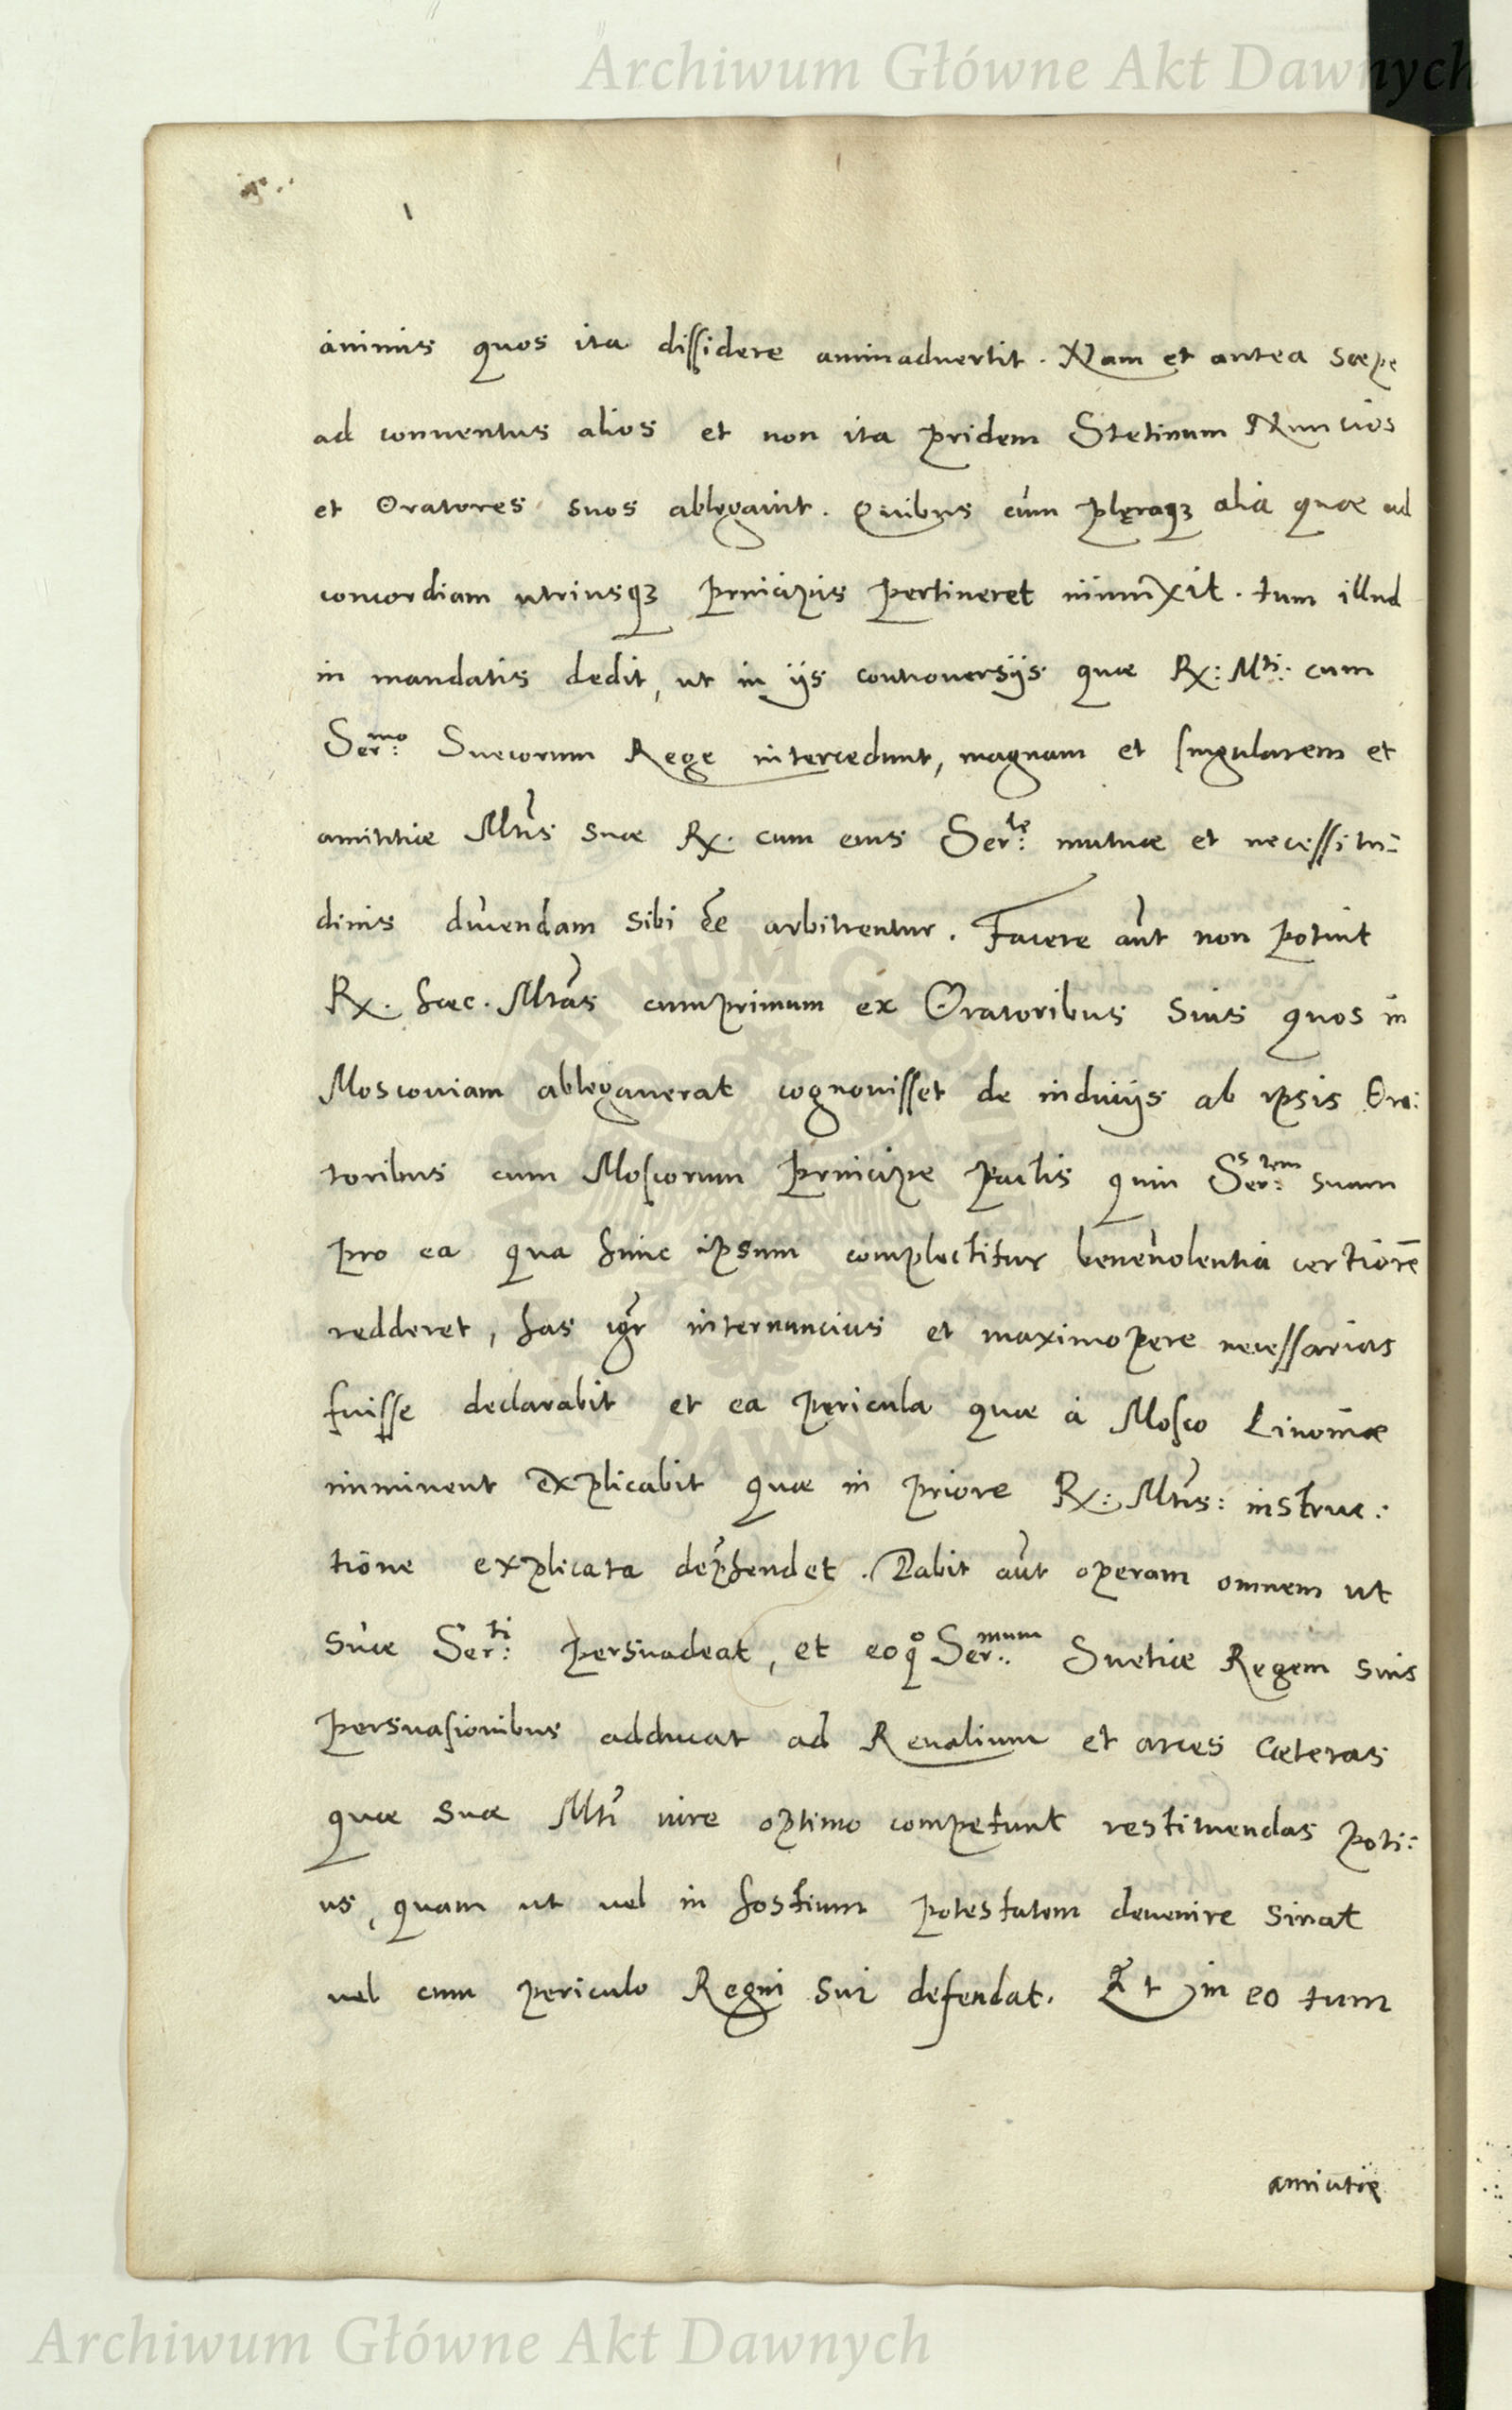 Archiwum Główne Akt Dawnych
animis quos ita dissidere animaduertit. Nam et antea saepe
ad conuentus alios et non ita pridem Stetinum Nuncios
et Oratores suos ablegauit. Quibus cùm plęraqꝫ alia quae ad
concordiam utriusqꝫ principis pertineret iniunxit. tum illud
in mandatis dedit, ut in ijs controuersijs quae Rx: Mti: cum
Sermo: Suecorum Rege intercedunt, magnam et singularem et
amititiae Mtis suae Rx. cum eius Serte: mutuae et necessitu=
dinis ducendam sibi ee͂ arbitrentur. Facere aut͂ non potuit
Rx. haec. Mtas cumprimum ex Oratoribus suis quos in
Moscouiam ablegauerat cognouisset de induciis ab ipsis Ora:
toribus cum Moscorum Principe pactis quin Ser:stem suam
pro ea qua hunc ipsum complectitur beneuolentia certiore͂
redderet, has igr͂ internuncius et maximopere necessarias
fuisse declarabit et ea pericula quae à Mosco Liuoniae
imminent explicabit quae in priore Rx: Mtis: instruc:
tione explicata depr͂hendet. Dabit aut͂ operam omnem ut
suae Serti: persuadeat, et eoqo Sermum: Suetiae Regem suis
persuasionibus adducat ad Reualium et arces caeteras
quae suae Mti iure optimo competunt restituendas poti:
us, quam ut uel in hostium potestatem deuenire sinat
uel cum periculo Regni sui defendat. Et in eo tum
amicitię
Archiwum Główne Akt Dawnych